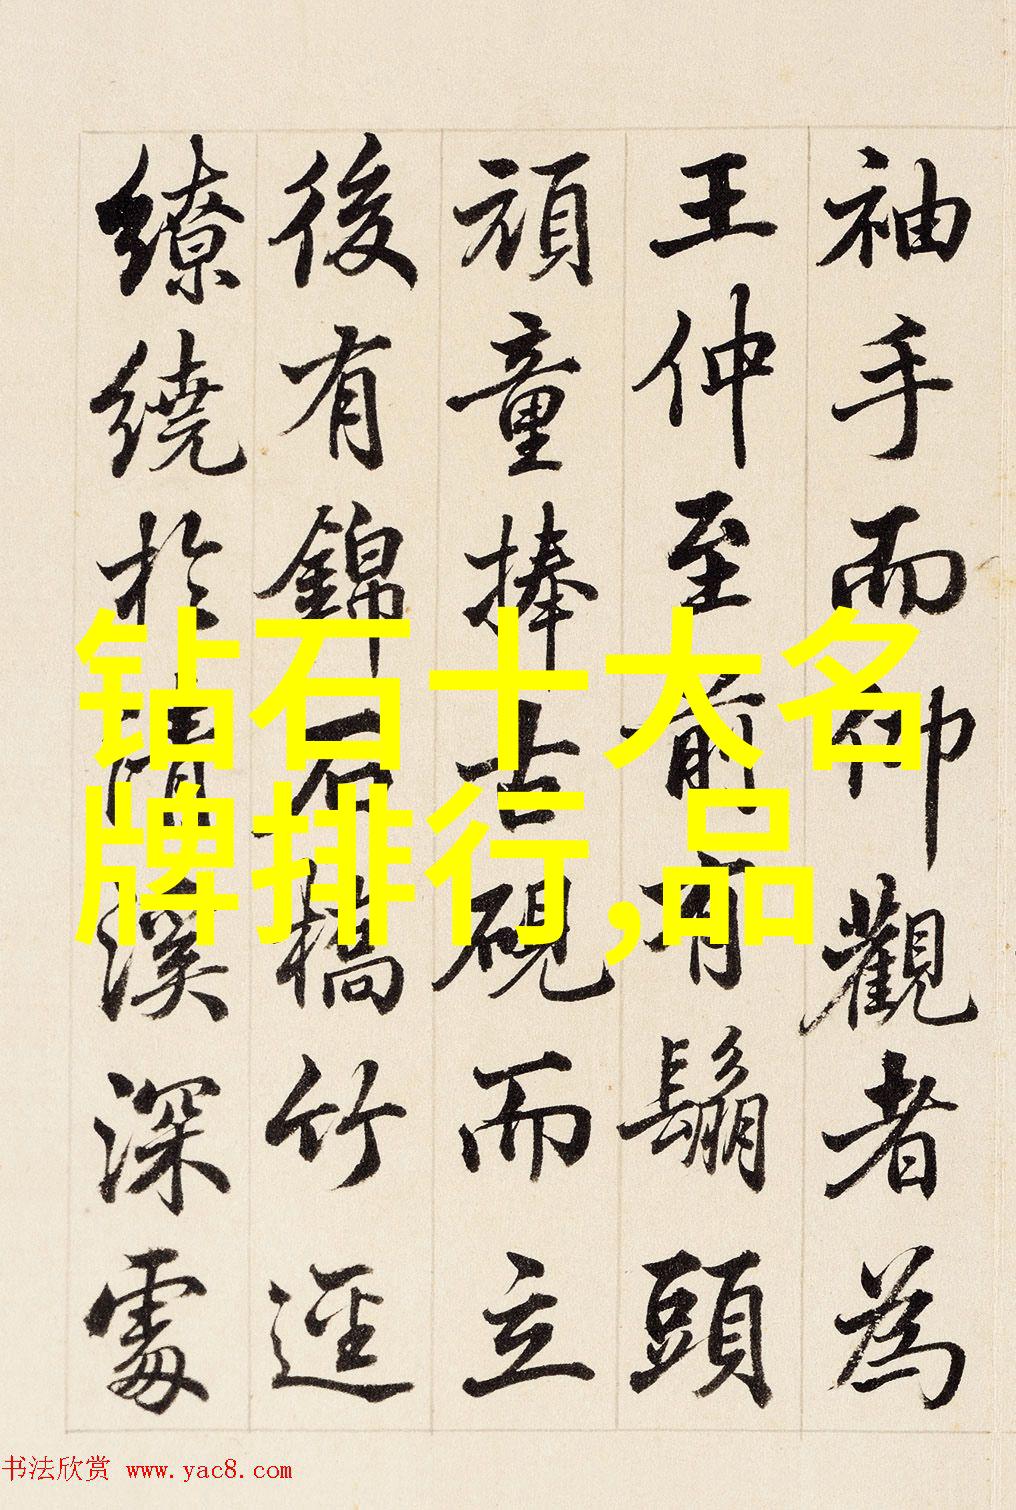 袖手而仰觀者為
王仲至前有鬅頭
頑童捧古硯而立
後有錦石橋竹逕
繚繞於清溪深處
钻石十大名
牌排行,品
书法欣赏 www.yac8.com